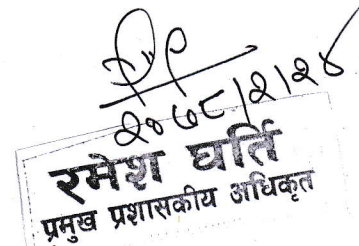 २०७८/२/२४
रमेश घर्ति
प्रमुख प्रशासकीय अधिकृत